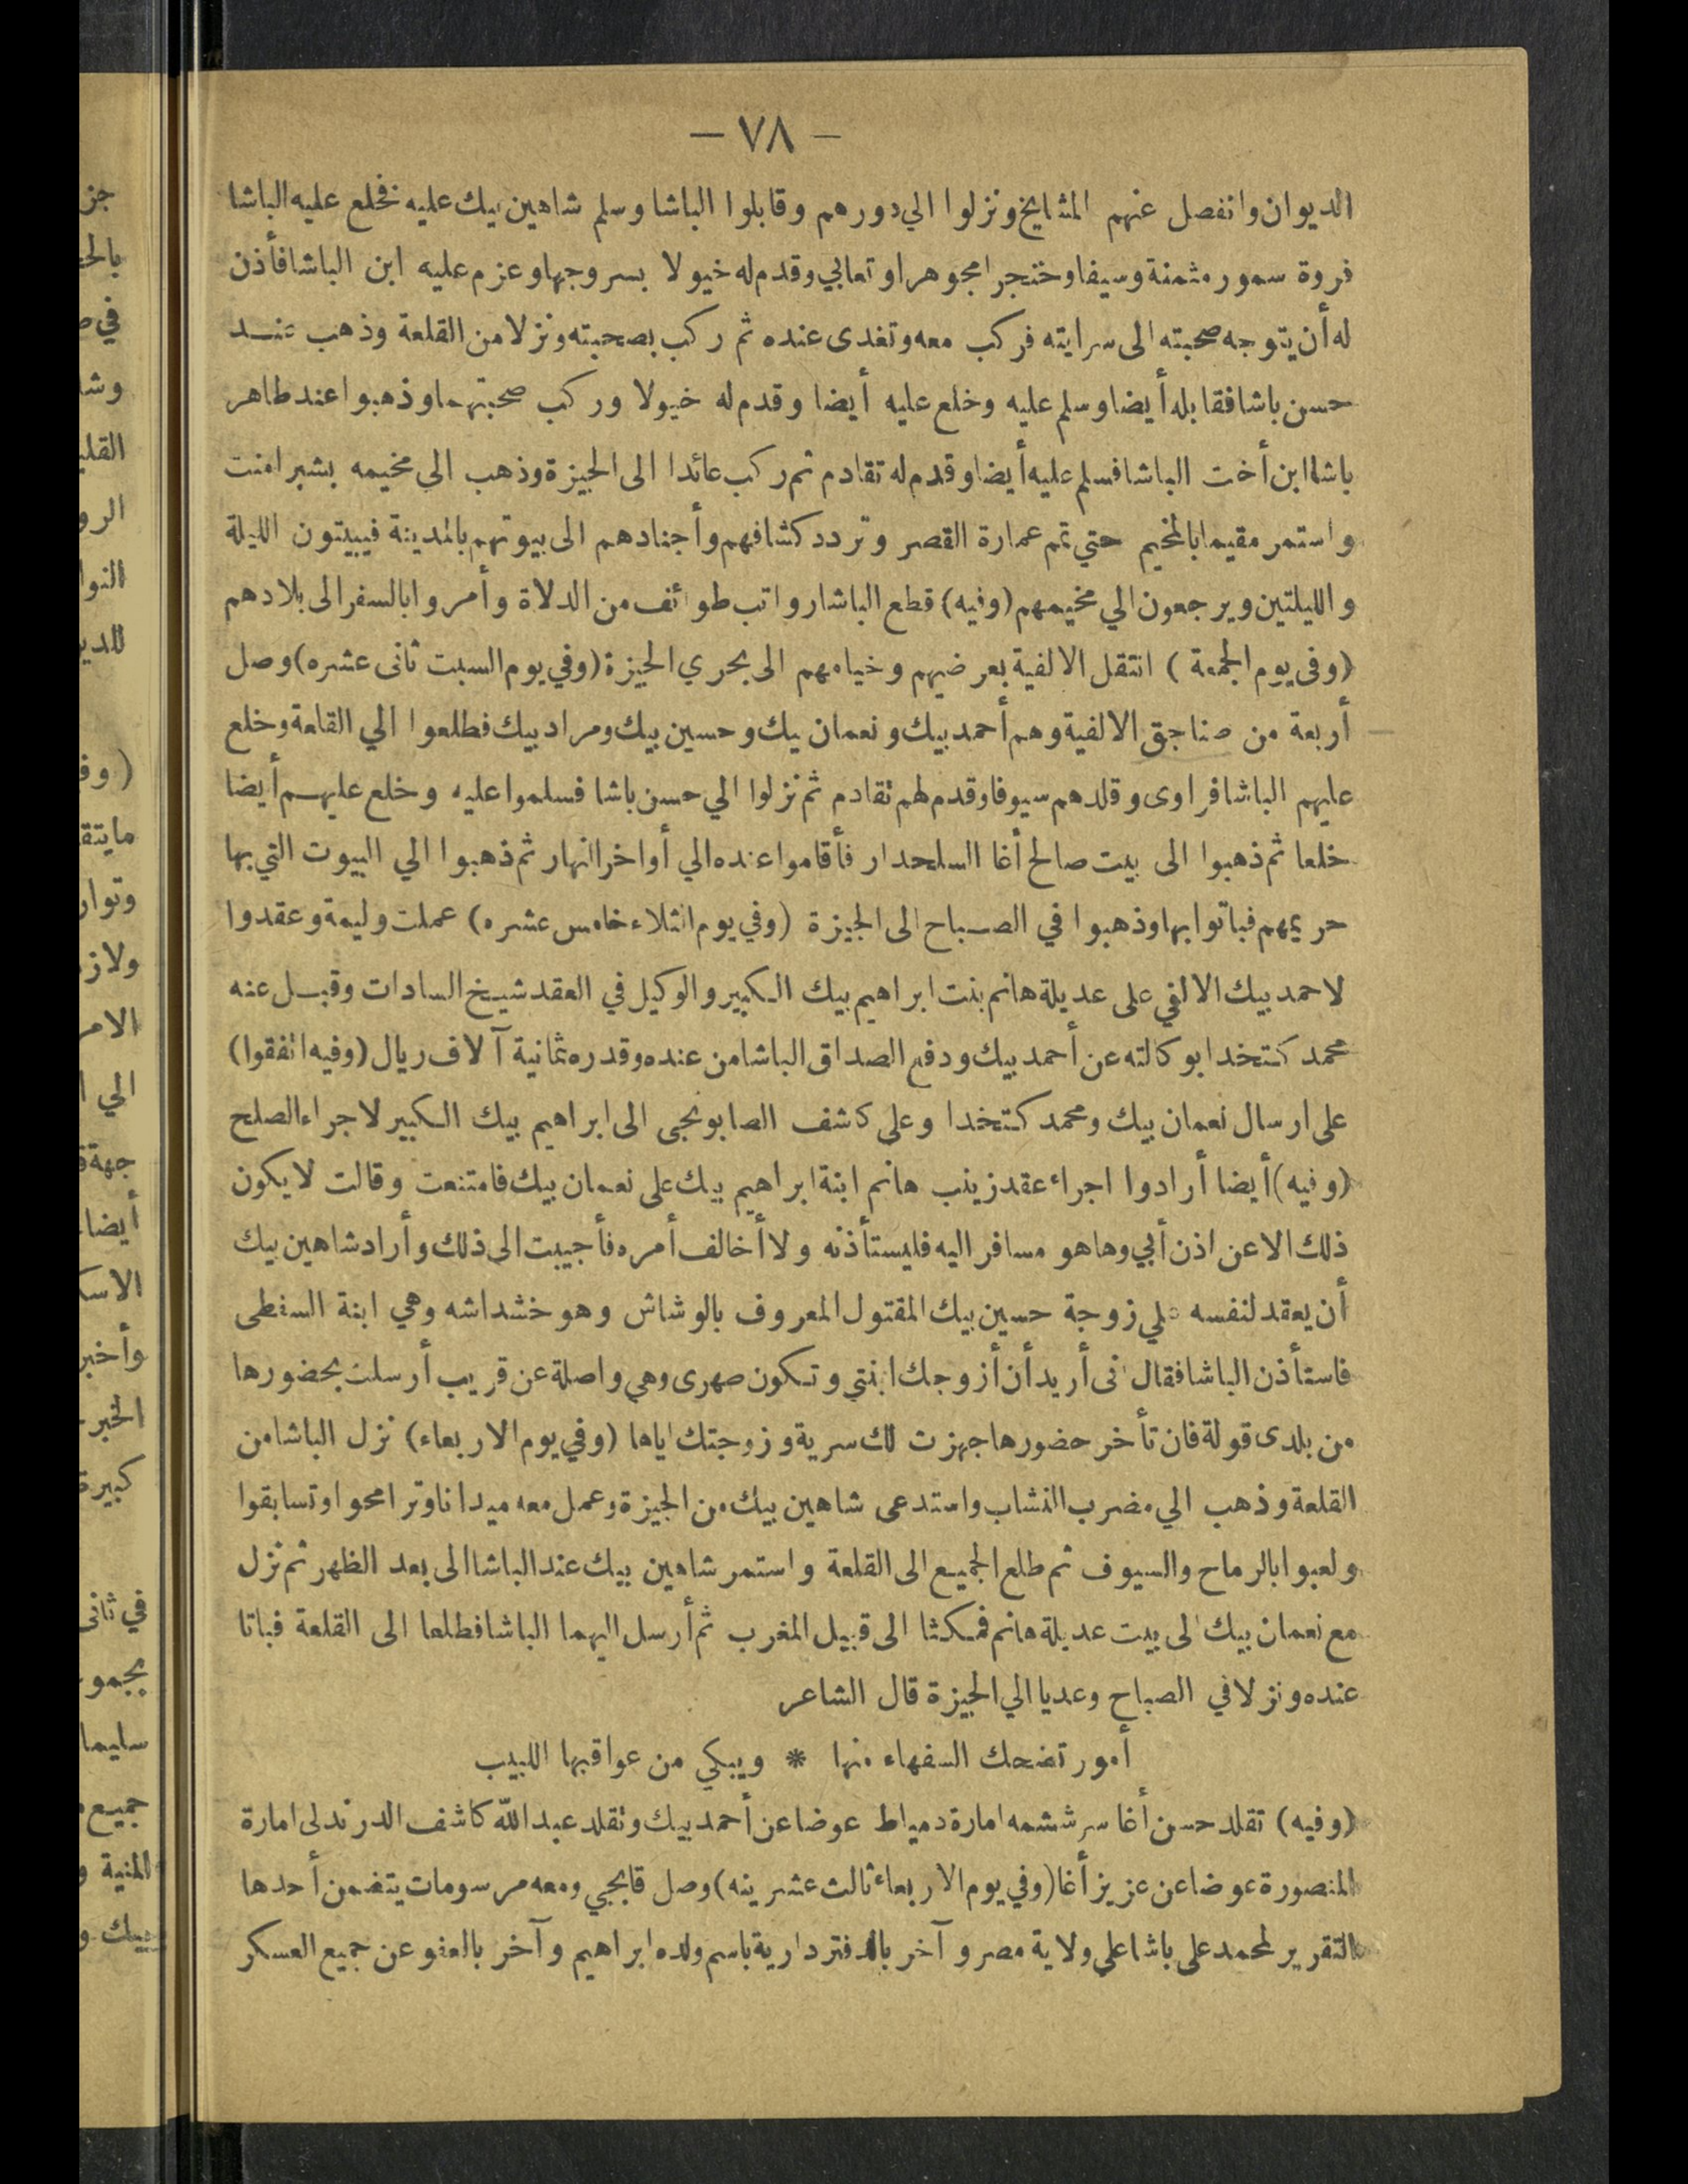 — ٧٨ —
الديوان وانفصل عنهم المشايخ ونزلوا الي دورهم وقابلوا الباشا وسلم شاهين بيك عليه فخلع عليه الباشا
فروة سمور مثمنة وسيفا وخنجرا مجوهرا وتعابي وقدم له خيولا بسروجها وعزم عليه ابن الباشا فأذن
له أن يتوجه صحبته الى سرايته فركب معه وتغدى عنده ثم ركب بصحبته ونزلا من القلعة وذهب عند
حسن باشا فقابله أيضا وسلم عليه وخلع عليه أيضا وقدم له خيولا وركب صحبتهما وذهبوا عند طاهر
باشا ابن أخت الباشا فسلم عليه أيضا وقدم له تقادم ثم ركب عائدا الى الجيزة وذهب الى مخيمه بشبرامنت
واستمر مقيما بالمخيم حتي تم عمارة القصر وتردد كشافهم وأجنادهم الى بيوتهم بالمدينة فيبيتون الليلة
والليلتين ويرجعون الي مخيمهم (وفيه) قطع الباشا رواتب طوائف من الدلاة وأمروا بالسفر الى بلادهم
(وفى يوم الجمعة) انتقل الالفية بعرضيهم وخيامهم الى بحري الجيزة (وفي يوم السبت ثانى عشره) وصل
أربعة من صناجق الالفية وهم أحمد بيك ونعمان بيك وحسين بيك ومراد بيك فطلعوا الي القلعة وخلع
عليهم الباشا فراوى وقلدهم سيوفا وقدم لهم تقادم ثم نزلوا الي حسن باشا فسلموا عليه وخلع عليهم أيضا
خلعا ثم ذهبوا الى بيت صالح أغا السلحدار فأقاموا عنده الي أواخر النهار ثم ذهبوا الي البيوت التي بها
حريمهم فباتوا بها وذهبوا في الصباح الى الجيزة (وفي يوم الثلاء خامس عشره) عملت وليمة وعقدوا
لاحمد بيك الالفي على عديلة هانم بنت ابراهيم بيك الكبير والوكيل في العقد شيخ السادات وقبل عنه
محمد كتخدا بوكالته عن أحمد بيك ودفع الصداق الباشا من عنده وقدره ثمانية آلاف ريال (وفيه اتفقوا)
على ارسال نعمان بيك ومحمد كتخدا وعلى كاشف الصابونجى الى ابراهيم بيك الكبير لاجراء الصلح
(وفيه) أيضا أرادوا اجراء عقد زينب هانم ابنة ابراهيم بيك على نعمان بيك فامتنعت وقالت لا يكون
ذلك الا عن اذن أبي وها هو مسافر اليه فليستأذنه ولا أخالف أمره فأجيبت الى ذلك وأراد شاهين بيك
أن يعقد لنفسه علي زوجة حسين بيك المقتول المعروف بالوشاش وهو خشداشه وهي ابنة السفطى
فاستأذن الباشا فقال انى أريد أن أزوجك ابنتي وتكون صهرى وهي واصلة عن قريب أرسلت بحضورها
من بلدى قولة فان تأخر حضورها جهزت لك سرية وزوجتك اياها (وفي يوم الاربعاء) نزل الباشا من
القلعة وذهب الي مضرب النشاب واستدعى شاهين بيك من الجيزة وعمل معه ميدانا وترامحوا وتسابقوا
ولعبوا بالرماح والسيوف ثم طلع الجميع الى القلعة واستمر شاهين بيك عند الباشا الى بعد الظهر ثم نزل
مع نعمان بيك الى بيت عديلة هانم فمكثا الى قبيل المغرب ثم أرسل اليهما الباشا فطلعا الى القلعة فباتا
عنده ونزلا في الصباح وعديا الي الجيزة قال الشاعر
أمور تضحك السفهاء منها * ويبكي من عواقبها اللبيب
(وفيه) تقلد حسن أغا سرششمه امارة دمياط عوضا عن أحمد بيك وتقلد عبد الله كاشف الدرندلى امارة
المنصورة عوضا عن عزيز أغا (وفي يوم الاربعاء ثالث عشرينه) وصل قابجي ومعه مرسومات يتضمن أحدها
التقرير لمحمد على باشا علي ولاية مصر وآخر بالدفتردارية باسم ولده ابراهيم وآخر بالعفو عن جميع العسكر